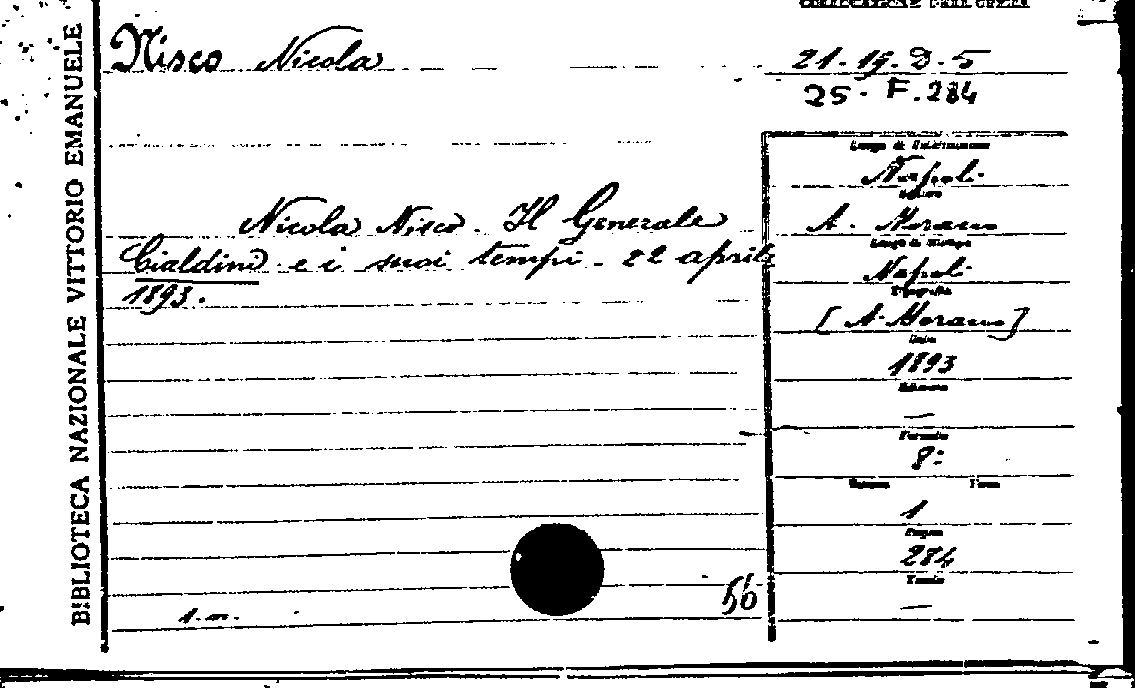 COLLOCAZIONE DELL'OPERA
BIBLIOTECA NAZIONALE VITTORIO EMANUELE
Nisco Nicola
21.19.D.5
25. F.284
Nicola Nisco. Il Generale
Cialdini e i suoi tempi. 22 aprile
1893.
Luogo di Pubblicazione
Napoli
Editore
A. Morano
Luogo di Stampa
Napoli
Tipografia
[A. Morano]
Data
1893
Edizione
—
Formato
8º
Volume
1
Pagine
284
Tavole
—
1. m.
56